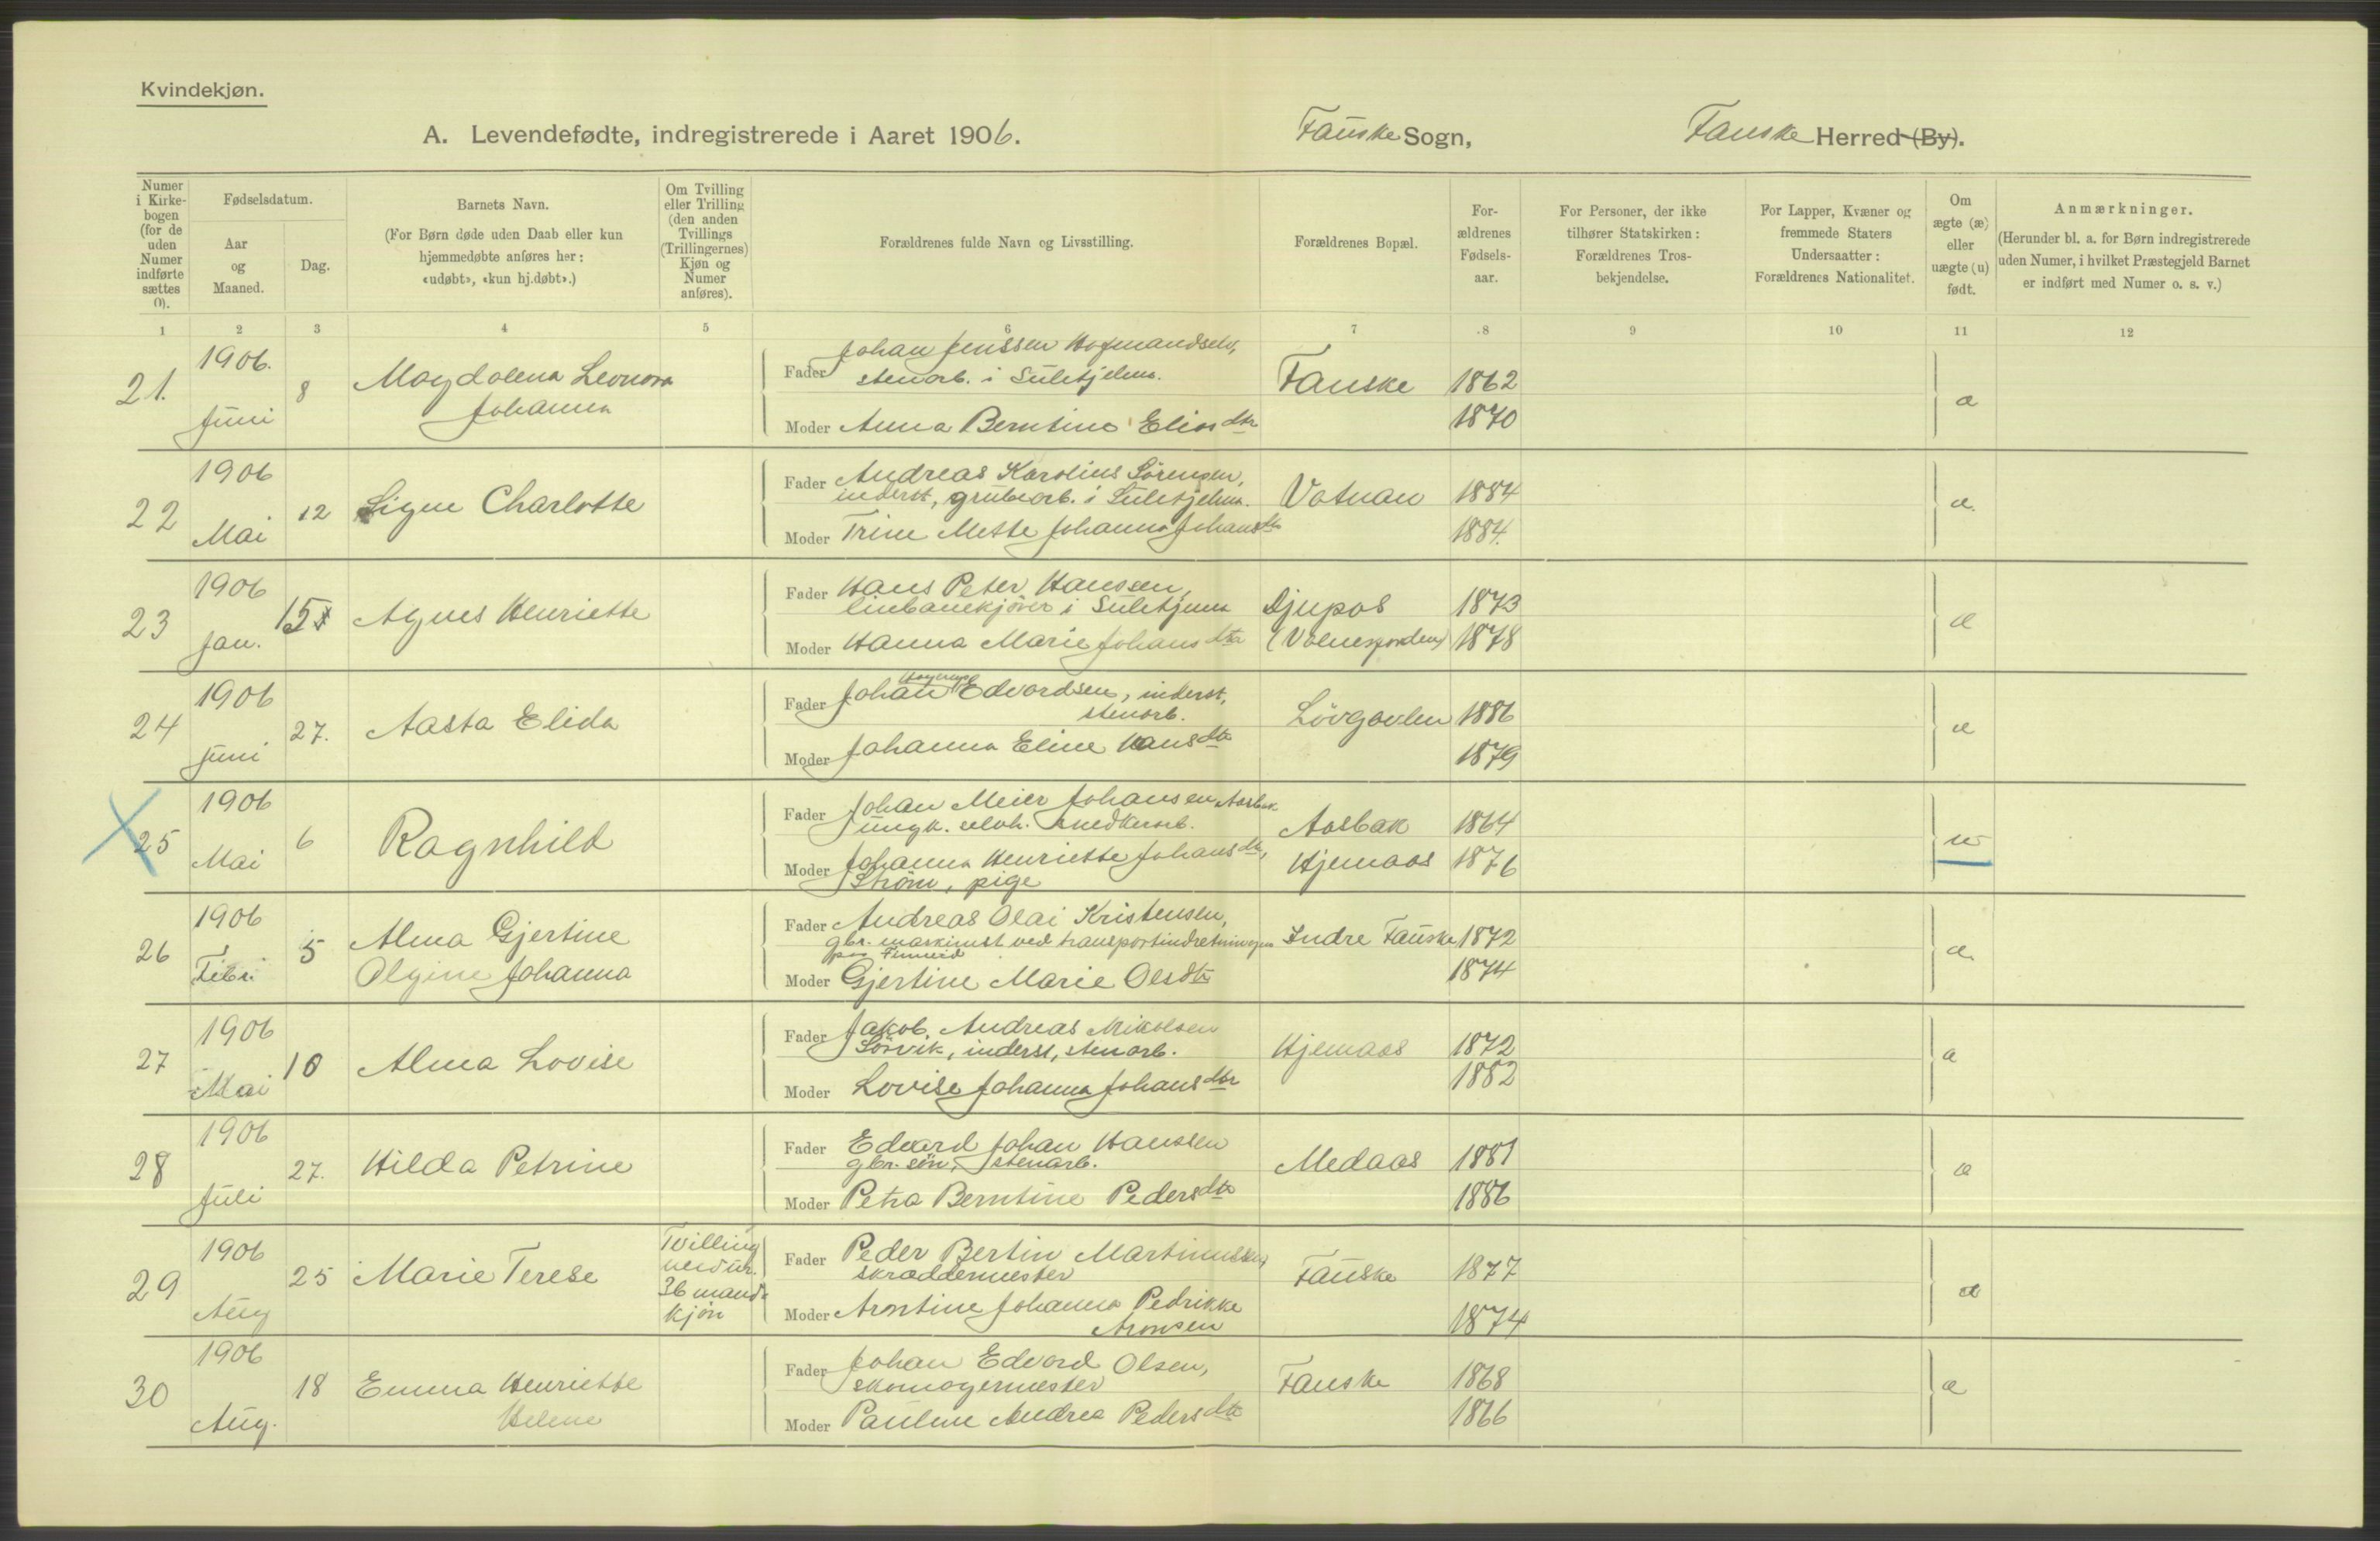 Kvindekjøn.
A. Levendefødte, indregistrerede i Aaret 1906.
Fauske Sogn,
Fauske Herred (By).
Numer i Kirke-bogen (for de uden Numer indførte sættes 0).
Fødselsdatum.
Aar og Maaned.
Dag.
Barnets Navn.
(For Børn døde uden Daab eller kun hjemmedøbte anføres her: «udøbt», «kun hj.døbt».)
Om Tvilling eller Trilling (den anden Tvillings (Trillingernes) Kjøn og Numer anføres).
Forældrenes fulde Navn og Livsstilling.
Forældrenes Bopæl.
For-ældrenes Fødsels-aar.
For Personer, der ikke tilhører Statskirken: Forældrenes Tros-bekjendelse.
For Lapper, Kvæner og fremmede Staters Undersaatter: Forældrenes Nationalitet.
Om ægte (æ) eller uægte (u) født.
Anmærkninger.
(Herunder bl. a. for Børn indregistrerede uden Numer, i hvilket Præstegjeld Barnet er indført med Numer o. s. v.)
1 2 3 4 5 6 7 8 9 10 11 12
21. 1906. Juni 8 Magdalena Leonora Johanna
Fader Johan Jenssen
stenarb. i Sulitjelma. Fauske 1862
Moder Anna Berntine Eliasdtr 1870 æ
22 1906 Mai 12 Signe Charlotte
Fader Andreas Karolius Sörensen,
inderst, grubearb. i Sulitjelma. Vatnan 1884
Moder Trine Mette Johanna Johansdtr 1884. æ.
23 1906 Jan. 15 Agnes Henriette
Fader Hans Peter Hanssen,
linbanekjörer i Sulitjelma Djupos 1873
Moder Hanna Marie Johansdtr 1878 æ
24 1906 Juni 27. Aasta Elida
Fader Johan Edvardsen, inderst,
stenarb. Lövgavlen 1886
Moder Johanna Eline Hansdtr 1879 æ
25 1906 Mai 6 Ragnhild
Fader Johan Meier Johansen Aasbak
ungk. selvh. snedkerarb. Aasbak 1864
Moder Johanna Henriette Johansdtr,
Ström, pige Hjemaas 1876 u
26 1906 Febr. 5 Alma Gjertine Olgine Johanna
Fader Andreas Olai Kristensen,
gbr. maskinist ved transportindretningen
paa Finneid Indre Fauske 1872
Moder Gjertine Marie Olsdtr 1874 æ.
27 1906 Mai 10 Alma Lovise
Fader Jakob Andreas Mikalsen
Sörvik, inderst, stenarb. Hjemaas 1872
Moder Lovise Johanna Johansdtr 1882 æ
28 1906 Juli 27. Hilda Petrine
Fader Edvard Johan Hanssen
gbr. sön, stenarb. Medaas 1881
Moder Petra Berntine Pedersdtr 1886 æ
29 1906 Aug 25 Marie Terese
Tvilling med nr. 36 mandkjön
Fader Peder Bertin Martinussen
skræddermester Fauske 1877
Moder Arontine Johanna Pedrikke
Aronsen 1874 æ
30 1906 Aug. 18 Emma Henriette Helene
Fader Johan Edvard Olsen,
skomagermester Fauske 1868
Moder Pauline Andrea Pedersdtr 1866 æ